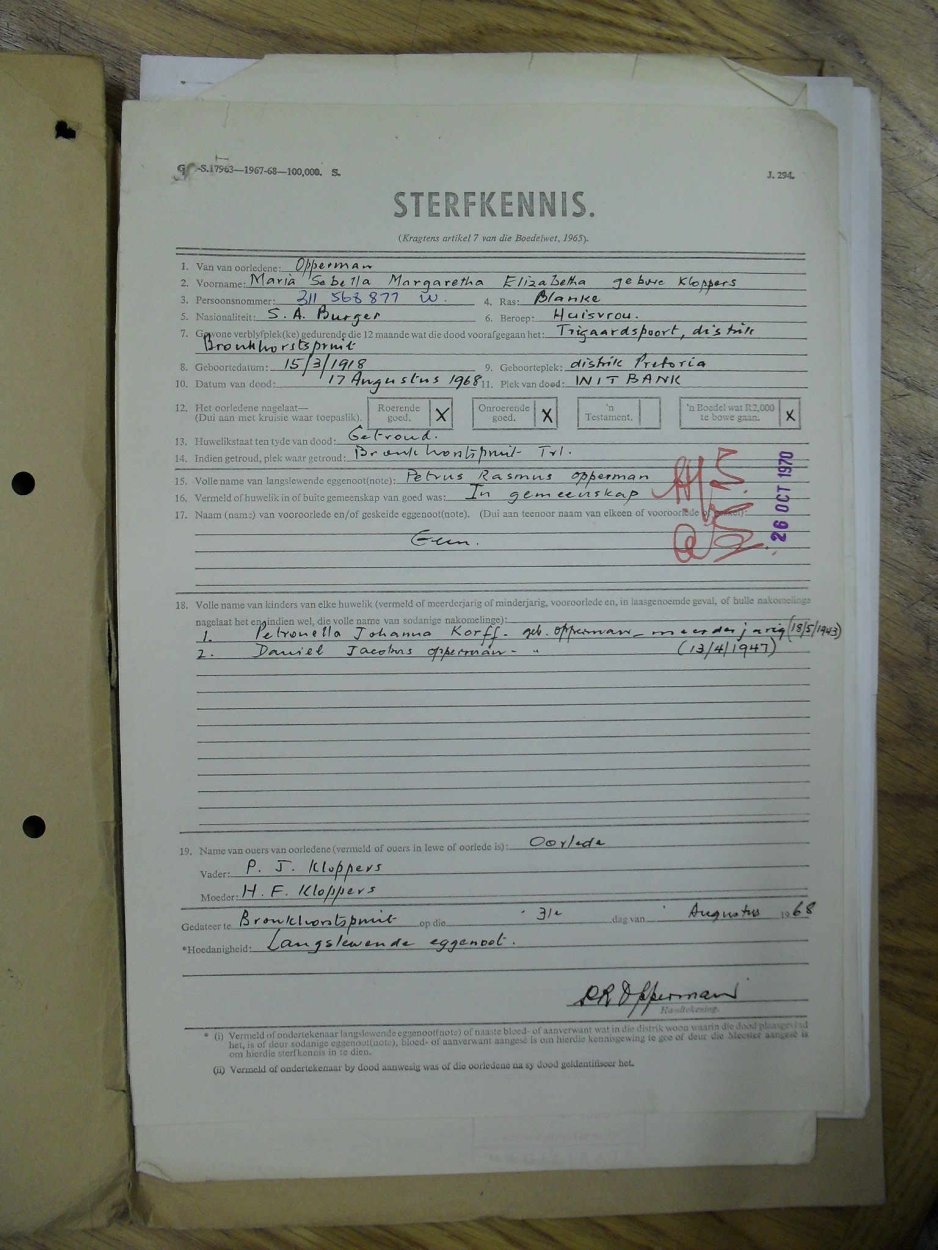 G.P.-S.17963—1967-68—100,000. S. J. 294.
STERFKENNIS.
(Kragtens artikel 7 van die Boedelwet, 1965).
1. Van van oorledene: Opperman
2. Voorname: Maria Sabella Margaretha Elizabetha gebore Kloppers
3. Persoonsnommer: 311 568 877 W. 4. Ras: Blanke
5. Nasionaliteit: S.A. Burger 6. Beroep: Huisvrou.
7. Gewone verblyfplek(ke) gedurende die 12 maande wat die dood voorafgegaan het: Trigaardspoort, distrik
Bronkhorstspruit
8. Geboortedatum: 15/3/1918 9. Geboorteplek: distrik Pretoria
10. Datum van dood: 17 Augustus 1968 11. Plek van dood: WITBANK
12. Het oorledene nagelaat—
(Dui aan met kruisie waar toepaslik). Roerende goed. X Onroerende goed. X 'n Testament. 'n Boedel wat R2,000 te bowe gaan. X
13. Huwelikstaat ten tyde van dood: Getroud.
14. Indien getroud, plek waar getroud: Bronkhorstspruit Tvl.
15. Volle name van langslewende eggenoot(note): Petrus Rasmus Opperman
16. Vermeld of huwelik in of buite gemeenskap van goed was: In gemeenskap
26 OCT 1970
17. Naam (name) van vooroorlede en/of geskeide eggenoot(note). (Dui aan teenoor naam van elkeen of vooroorlede of
Geen.
18. Volle name van kinders van elke huwelik (vermeld of meerderjarig of minderjarig, vooroorlede en, in laasgenoemde geval, of hulle nakomelinge
nagelaat het en indien wel, die volle name van sodanige nakomelinge):
1. Petronella Johanna Korff. geb. Opperman - meerderjarig (18/5/1943)
2. Daniel Jacobus Opperman - " (13/4/1947)
19. Name van ouers van oorledene (vermeld of ouers in lewe of oorlede is): Oorlede
Vader: P. J. Kloppers
Moeder: H. F. Kloppers
Gedateer te Bronkhorstspruit op die 31e dag van Augustus 1968
*Hoedanigheid: Langslewende eggenoot.
P R Opperman
Handtekening.
* (i) Vermeld of ondertekenaar langslewende eggenoot(note) of naaste bloed- of aanverwant wat in die distrik woon waarin die dood plaasgevind
het, is of deur sodanige eggenoot(note), bloed- of aanverwant aangesê is om hierdie kennisgewing te gee of deur die Meester aangesê is
om hierdie sterfkennis in te dien.
(ii) Vermeld of ondertekenaar by dood aanwesig was of die oorledene na sy dood geïdentifiseer het.